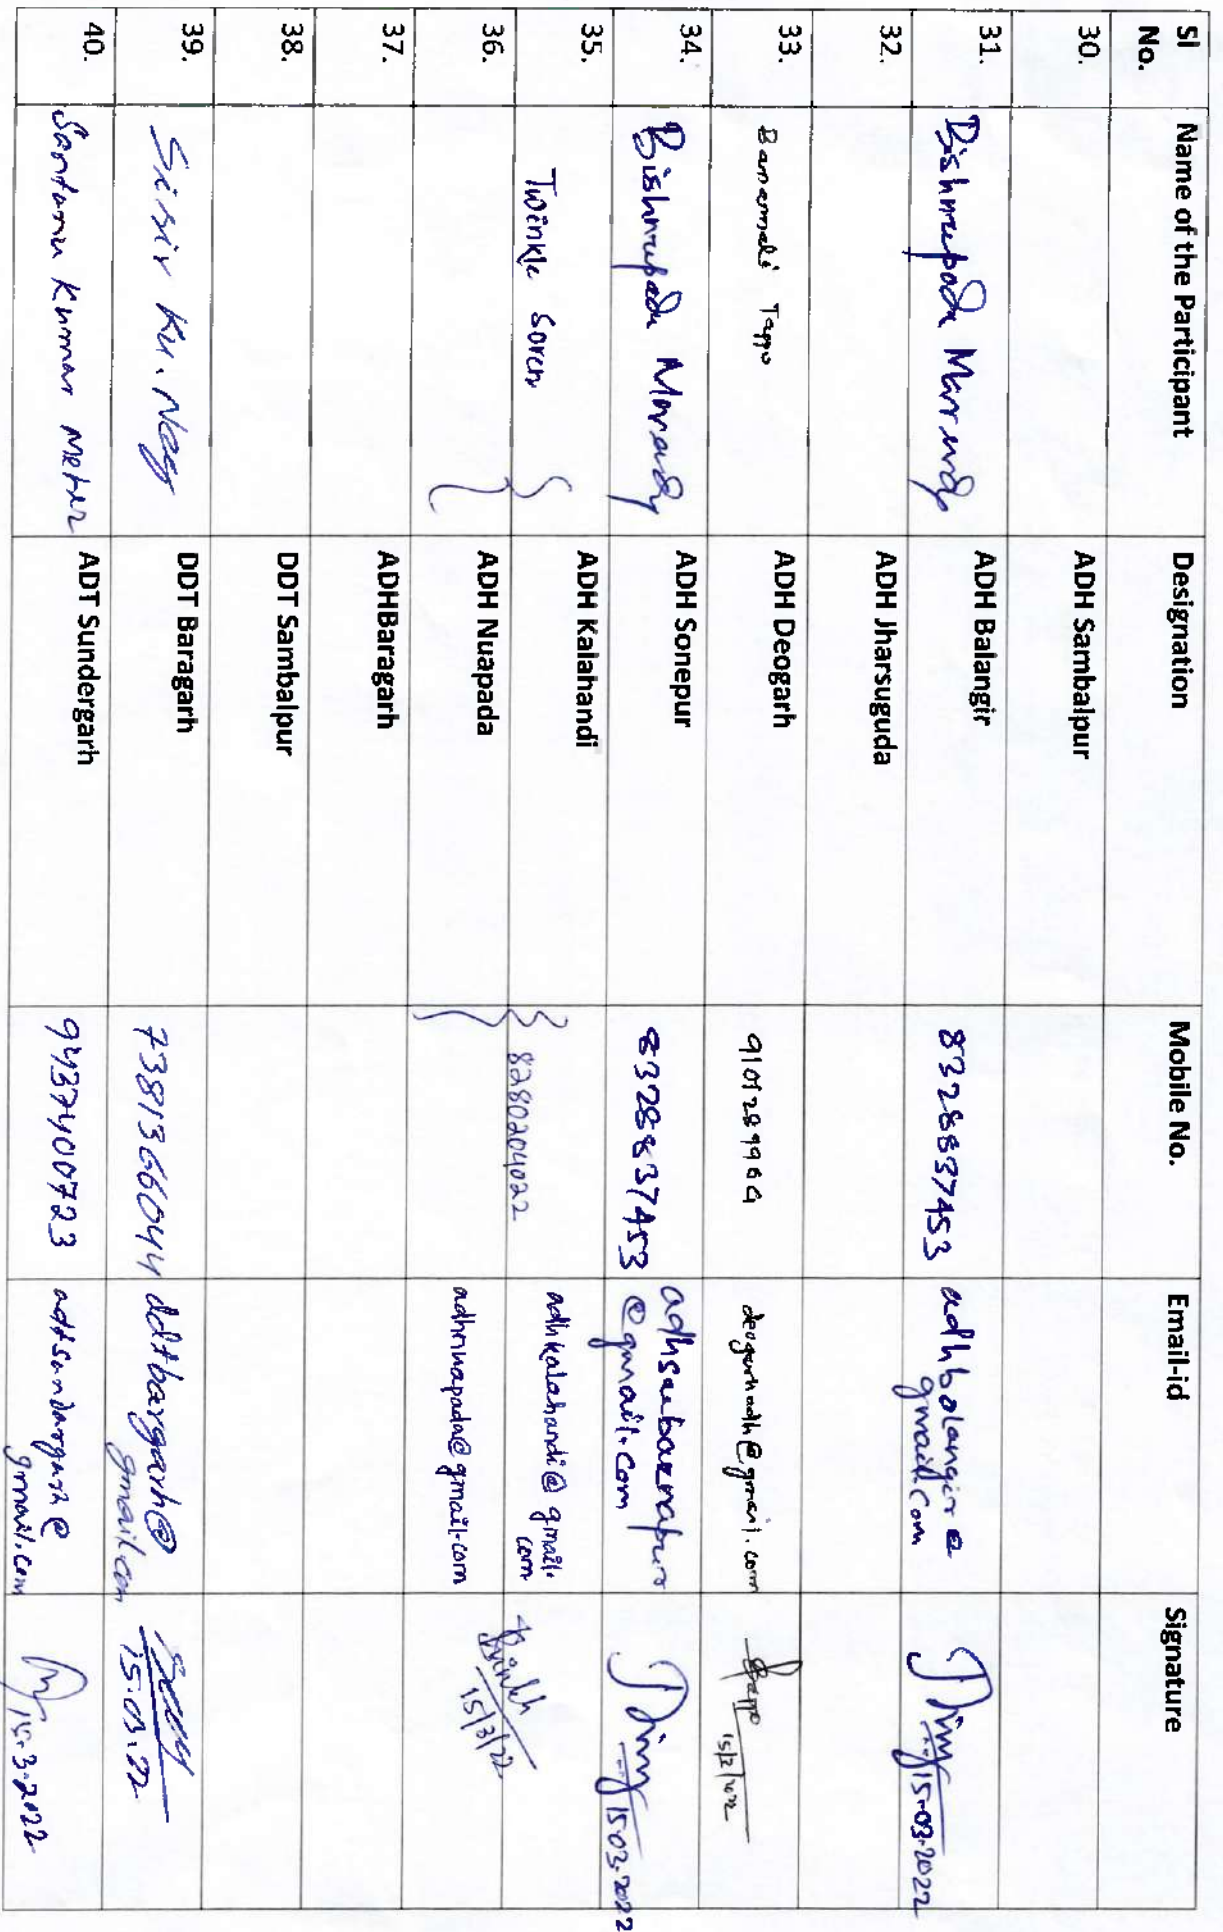 Sl No. Name of the Participant Designation Mobile No. Email-id Signature
30. ADH Sambalpur
31. Bishnupada Marandy ADH Balangir 8328837453 adhbolangir@
gmail.com 15-03-2022
32. ADH Jharsuguda
33. Banamali Toppo ADH Deogarh deogarhadh@gmail.com
34. Bishnupada Marandy ADH Sonepur 8328837453 adhsubarnapur
@gmail.com 15.03.2022
35. Twinkle Soren ADH Kalahandi 8280204022 adhkalahandi@gmail.
com
36. ADH Nuapada adhnuapada@gmail.com 15/3/22
37. ADHBaragarh
38. DDT Sambalpur
39. Sisir Ku. Nag DDT Baragarh 7381366044 ddtbargarh@
gmail.com 15.03.22
40. Santanu Kumar Meher ADT Sundergarh 9437400723 adtsundargarh@
gmail.com 15.3.2022